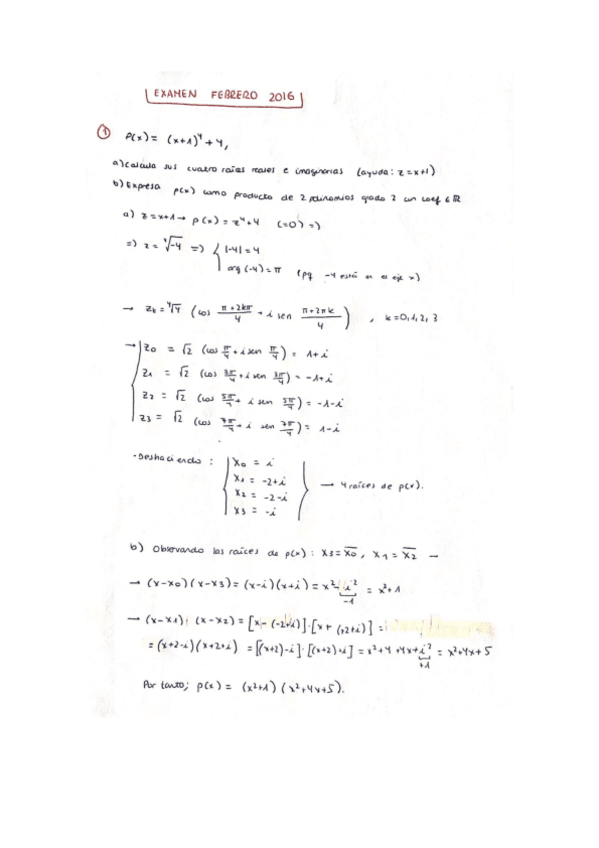 EXAMEN FEBRERO 2016
① P(x) = (x+1)⁴ + 4,
a) Calcula sus cuatro raíces reales e imaginarias (ayuda: z = x+1)
b) Expresa p(x) como producto de 2 polinomios grado 2 con coef ∈ ℝ
a) z = x+1 → p(x) = z⁴+4 (=0) ⇒
⇒ z = ⁴√-4 ⇒ { |-4| = 4
arg(-4) = π (pq -4 está en el eje x)
→ Zk = ⁴√4 (cos (π+2kπ)/4 + i sen (π+2πk)/4), k = 0,1,2,3
→ Z0 = √2 (cos π/4 + i sen π/4) = 1+i
Z1 = √2 (cos 3π/4 + i sen 3π/4) = -1+i
Z2 = √2 (cos 5π/4 + i sen 5π/4) = -1-i
Z3 = √2 (cos 7π/4 + i sen 7π/4) = 1-i
· Deshaciendo : X0 = i
X1 = -2+i
X2 = -2-i
X3 = -i
→ 4 raíces de p(x).
b) Observando las raíces de p(x) : X3 = X̄0, X1 = X̄2 →
→ (x-x0)(x-x3) = (x-i)(x+i) = x² - i² = x²+1
-1
→ (x-x1)·(x-x2) = [x-(-2+i)]·[x+(+2+i)] =
= (x+2-i)(x+2+i) = [(x+2)-i]·[(x+2)+i] = x²+4+4x+i² = x²+4x+5
+1
Por tanto; p(x) = (x²+1)(x²+4x+5).